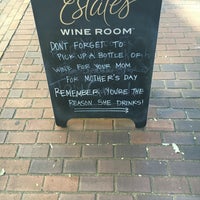 Estates
WINE ROOM
DON'T FORGET TO
PICK UP A BOTTLE OF
WINE FOR YOUR MOM
FOR MOTHER'S DAY
REMEMBER, YOU'RE THE
REASON SHE DRINKS!